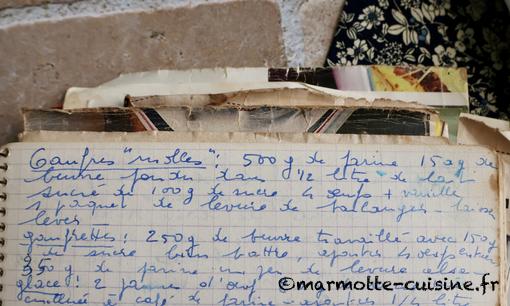 Gaufres "molles": 500 g de farine 150g de
beurre fondu dans 1/2 litre de lait
sucré de 100g de sucre 4 oeufs + vanille
1 paquet de levure de boulanger - laisser
lever -
gaufrettes: 250g de beurre travaillé avec 150g
de sucre bien battre, ajouter 4
g de farine un peu de levure
glace: 2 jaunes d'oeuf
café de farine - ajouter 1/4 litre
©marmotte-cuisine.fr